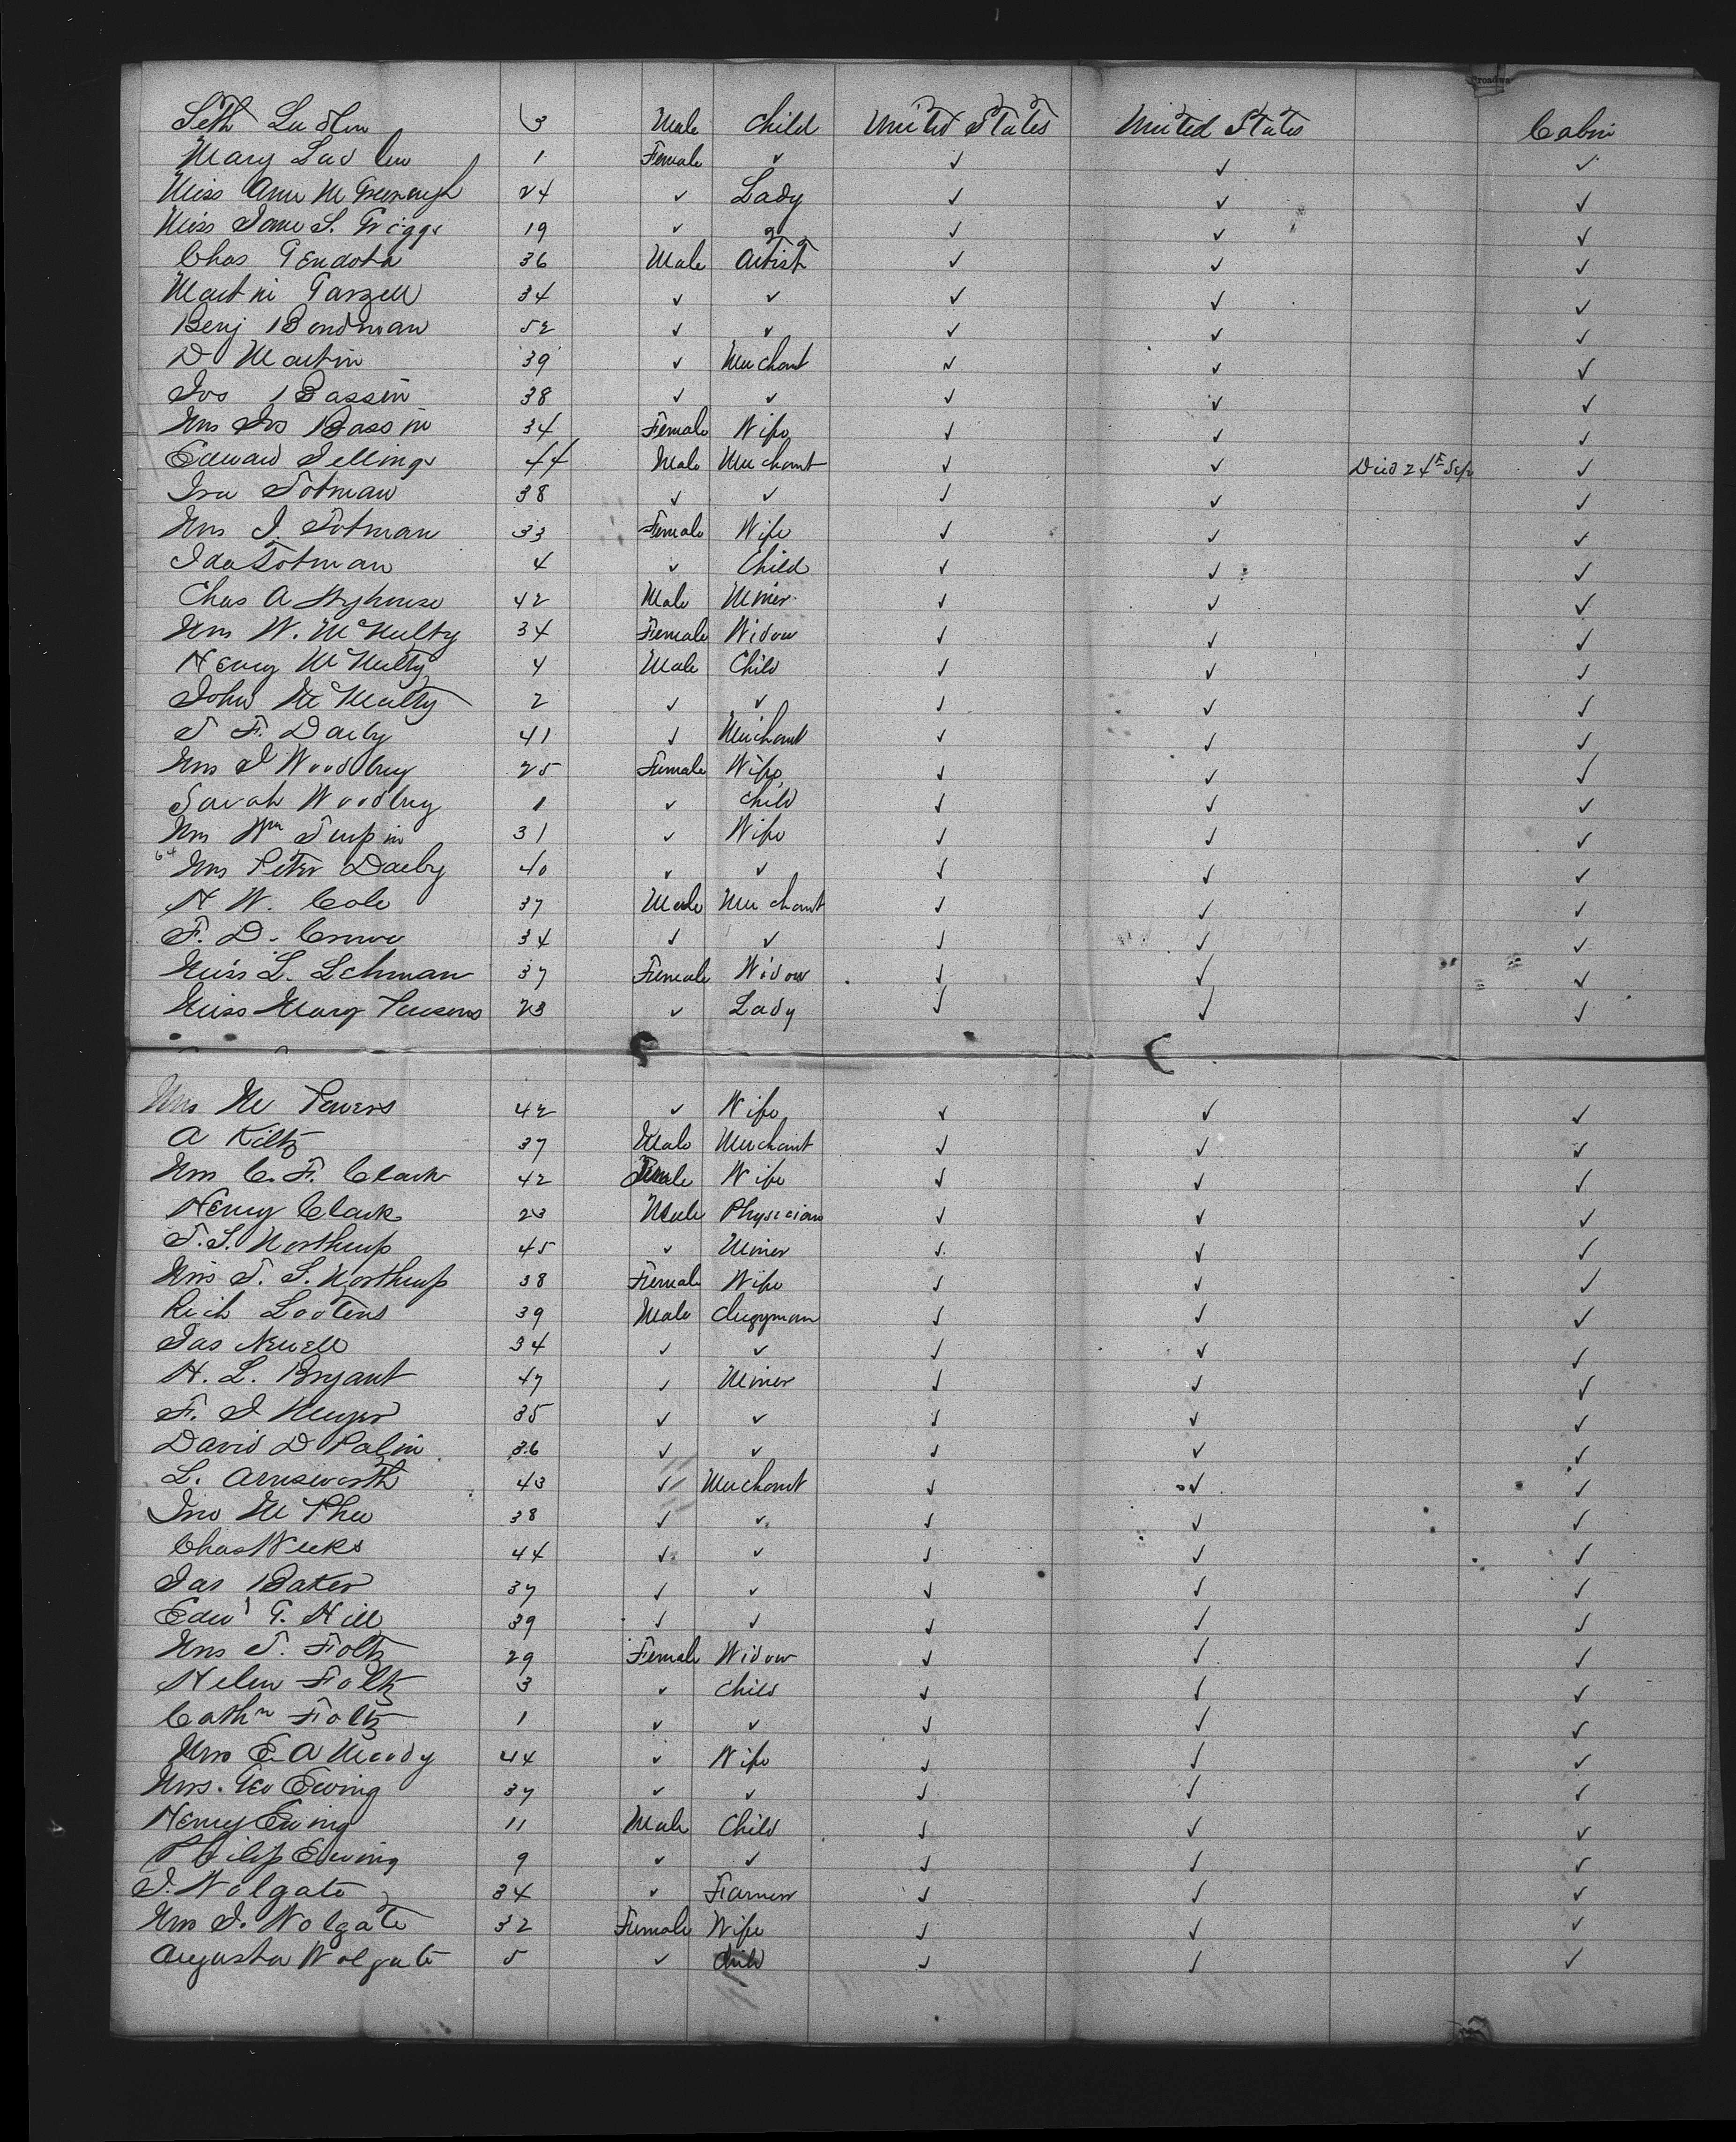 Broadwa
Seth Ludlow 3 Male Child United States United States Cabin
Mary Ludlow 1 Female ✓ ✓ ✓ ✓
Miss Ann M Greenough 24 ✓ Lady ✓ ✓ ✓
Miss Jane S. Griggs 19 ✓ ✓ ✓ ✓
Chas Gendota 36 Male Artist ✓ ✓ ✓
Martin 34 ✓ ✓ ✓ ✓ ✓
Benj Bondman 52 ✓ ✓ ✓ ✓ ✓
D Martin 39 ✓ Merchant ✓ ✓ ✓
Jos Bassin 38 ✓ ✓ ✓ ✓ ✓
Mrs Jos Bassin 34 Female Wife ✓ ✓ ✓
Edward Jellings 44 Male Merchant ✓ ✓ Died 24th Sep ✓
Ira Totman 38 ✓ ✓ ✓ ✓ ✓
Mrs I. Totman 33 Female Wife ✓ ✓ ✓
Ida Totman 4 ✓ Child ✓ ✓ ✓
Chas A 42 Male Miner ✓ ✓ ✓
Mrs W. McNulty 34 Female Widow ✓ ✓ ✓
Henry McNulty 4 Male Child ✓ ✓ ✓
John McNulty 2 ✓ ✓ ✓ ✓ ✓
T F. Darby 41 ✓ Merchant ✓ ✓ ✓
Mrs J Woodbury 25 Female Wife ✓ ✓ ✓
Sarah Woodbury 1 ✓ Child ✓ ✓ ✓
Mrs Wm Turpin 31 ✓ Wife ✓ ✓ ✓
64 Mrs Peter Darby 40 ✓ ✓ ✓ ✓ ✓
H W. Cole 37 Male Merchant ✓ ✓ ✓
F. D. 34 ✓ ✓ ✓ ✓ ✓
L. Lehman 37 Female Widow ✓ ✓ ✓
Miss Mary 23 ✓ Lady ✓ ✓ ✓
Mrs M Powers 42 ✓ Wife ✓ ✓ ✓
A Kiltz 37 Male Merchant ✓ ✓ ✓
Mrs C. F. Clark 42 Female Wife ✓ ✓ ✓
Henry Clark 23 Male Physician ✓ ✓ ✓
T. S. Northrup 45 ✓ Miner ✓ ✓ ✓
Mrs T. S. Northrup 38 Female Wife ✓ ✓ ✓
Rich Lootens 39 Male Clergyman ✓ ✓ ✓
Jas Newell 34 ✓ ✓ ✓ ✓ ✓
H. L. Bryant 47 ✓ Miner ✓ ✓ ✓
F. J Meyer 35 ✓ ✓ ✓ ✓ ✓
David D Palin 36 ✓ ✓ ✓ ✓ ✓
L. Arnsworth 43 ✓ Merchant ✓ ✓ ✓
Jno McPhee 38 ✓ ✓ ✓ ✓ ✓
Chas Weeks 44 ✓ ✓ ✓ ✓ ✓
Jas Baker 37 ✓ ✓ ✓ ✓ ✓
Edwd G. Hill 39 ✓ ✓ ✓ ✓ ✓
Mrs T. Foltz 29 Female Widow ✓ ✓ ✓
Helen Foltz 3 ✓ Child ✓ ✓ ✓
Cathn Foltz 1 ✓ ✓ ✓ ✓ ✓
Mrs E. A Moody 44 ✓ Wife ✓ ✓ ✓
Mrs. Geo Ewing 37 ✓ ✓ ✓ ✓ ✓
Henry Ewing 11 Male Child ✓ ✓ ✓
Philip Ewing 9 ✓ ✓ ✓ ✓ ✓
J. Wolgate 34 ✓ Farmer ✓ ✓ ✓
Mrs J. Wolgate 32 Female Wife ✓ ✓ ✓
Augusta Wolgate 5 ✓ Child ✓ ✓ ✓